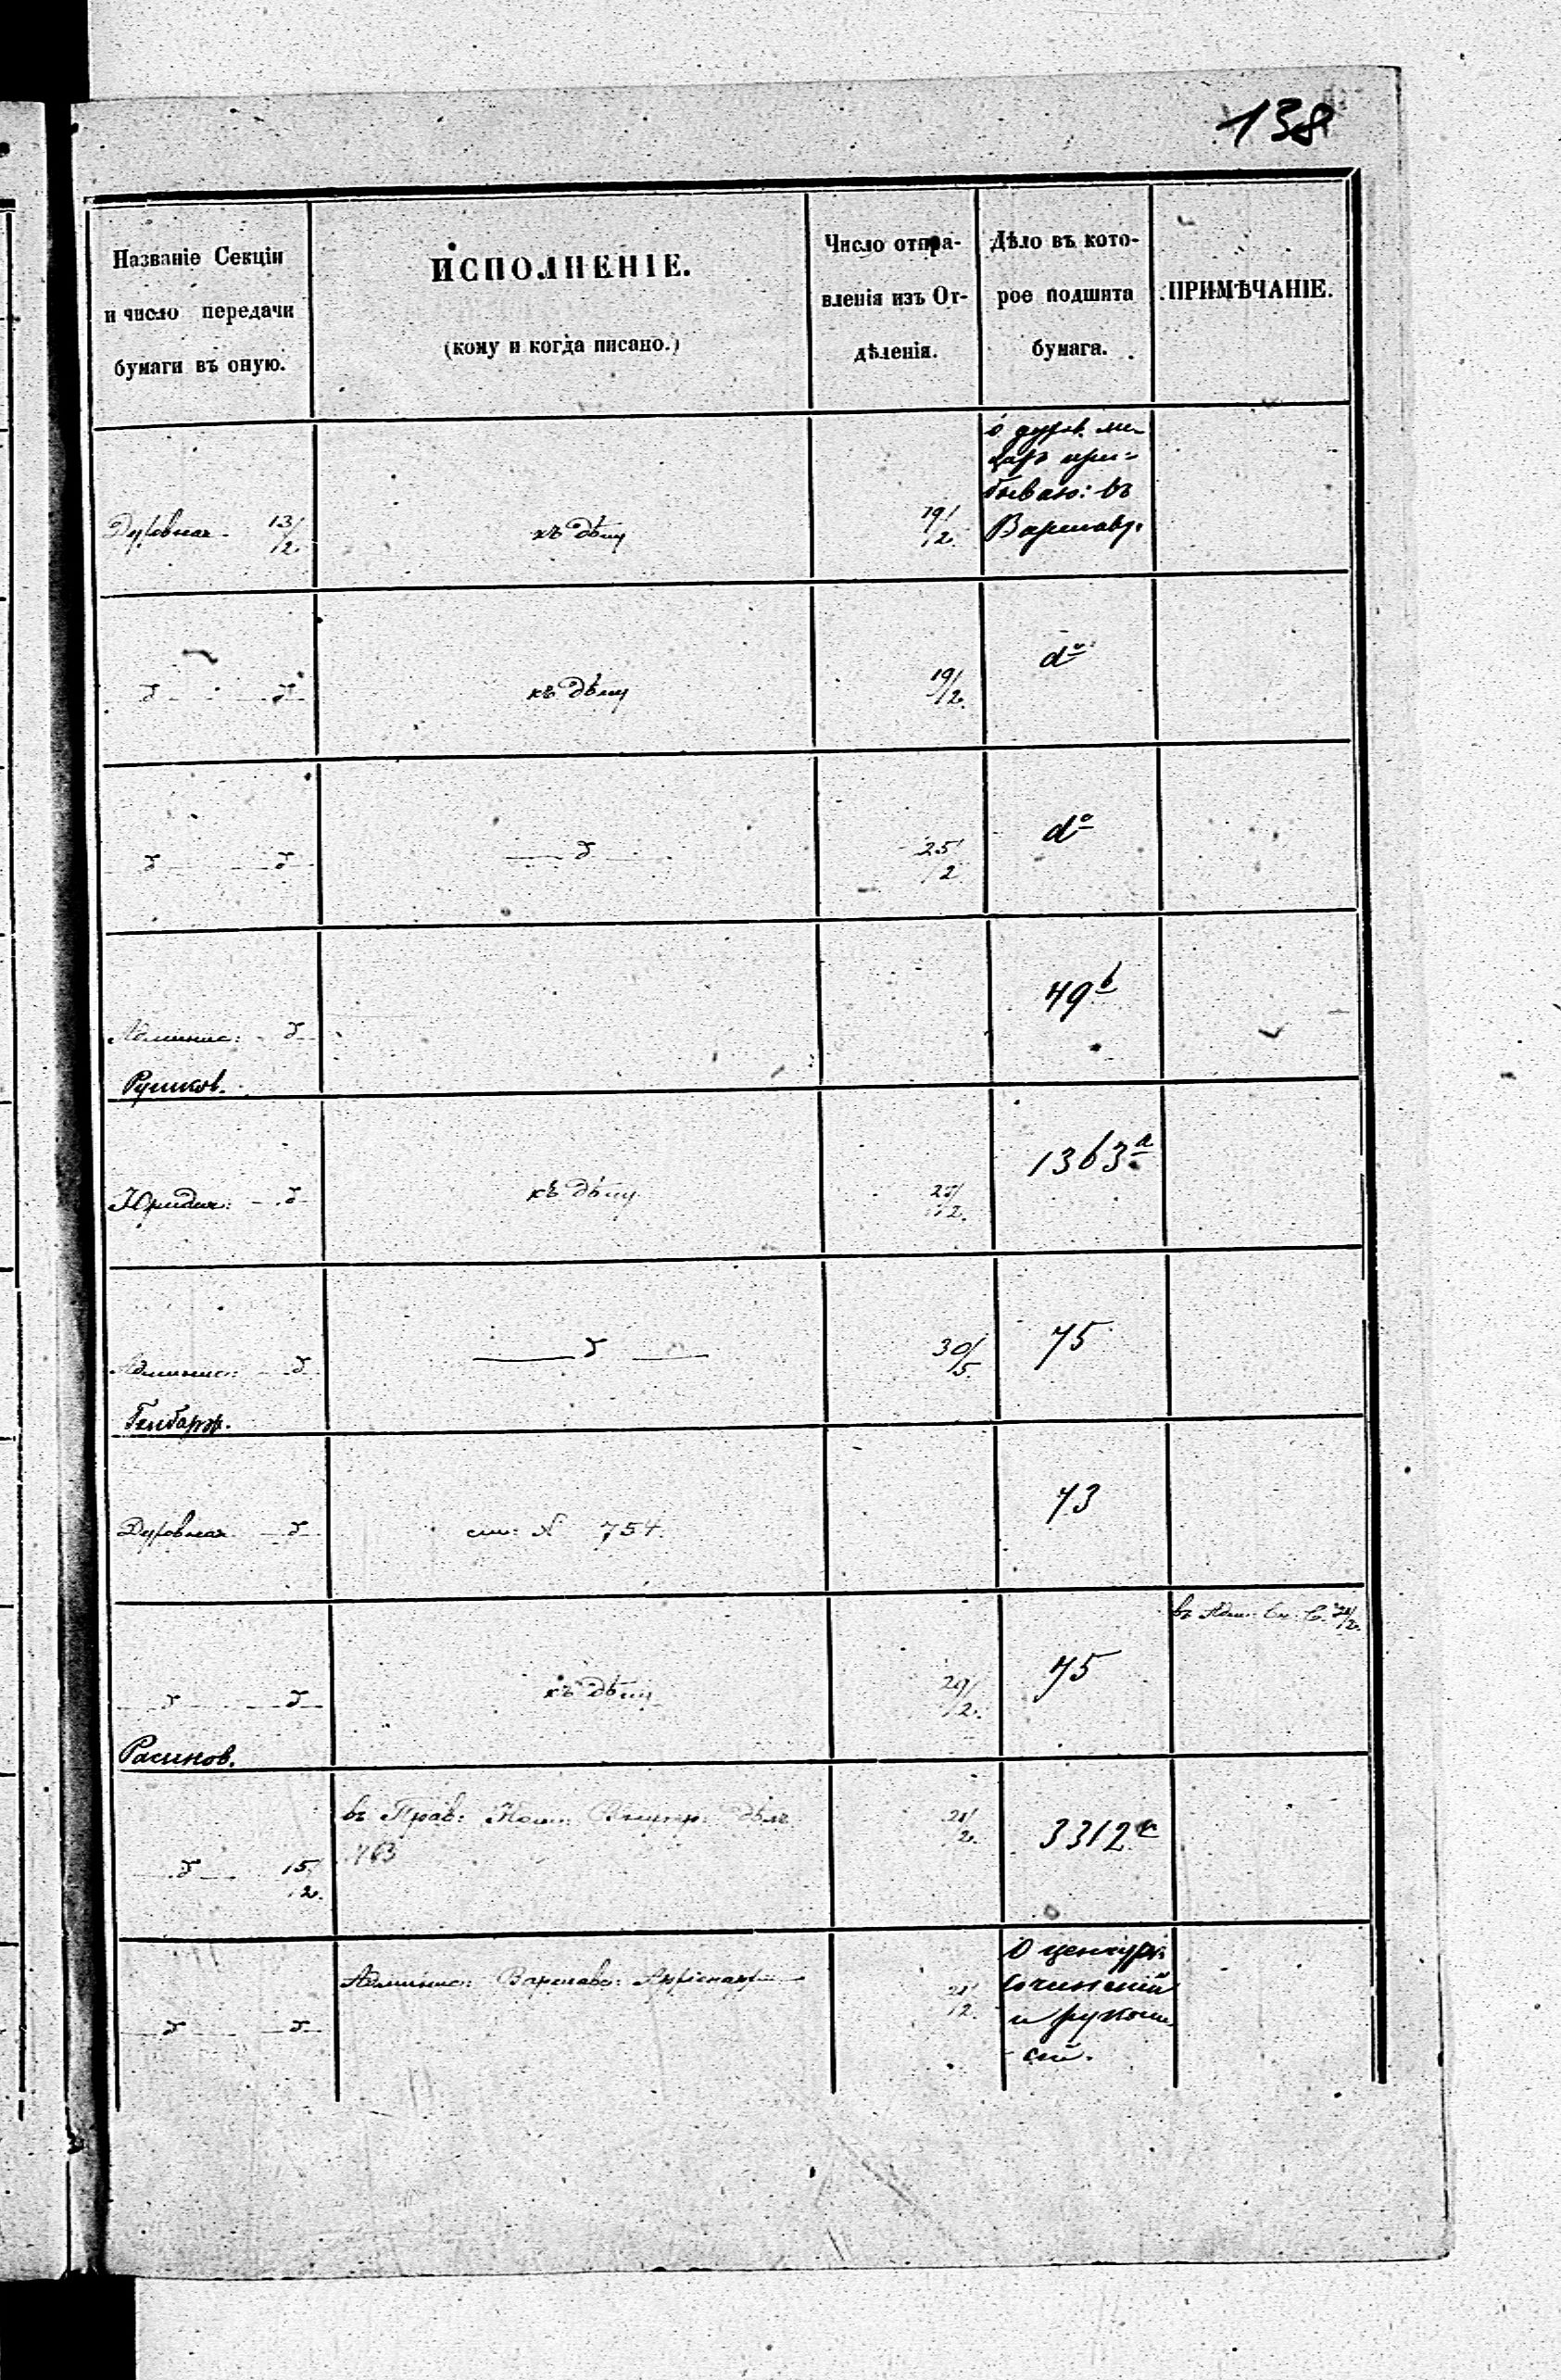 138
Названіе Секціи
и число передачи
бумаги въ оную.
ИСПОЛНЕНІЕ.
(кому и когда писано.)
Число отпра-
вленія изъ От-
дѣленія.
Дѣло въ кото-
рое подшита
бумага.
ПРИМѢЧАНІЕ.
Духовная 13/2 къ дѣлу 19/2
о духов. ли-
цахъ при-
бываю: въ
Варшаву.
къ дѣлу 19/2 dо
25/2 dо
Админис: 49b
Юридич: къ дѣлу 1363a
Админис: 30/5 75
Духовная см: N 754. 73
въ Адм:
къ дѣлу 29/2 75
Расинов.
въ Прав: Ком: Внутр: дѣлъ
763
15/2 21/2 3312a
Админис: Варшавс:
21/2
О цензурѣ
сочиненій
и рукопи
сей.